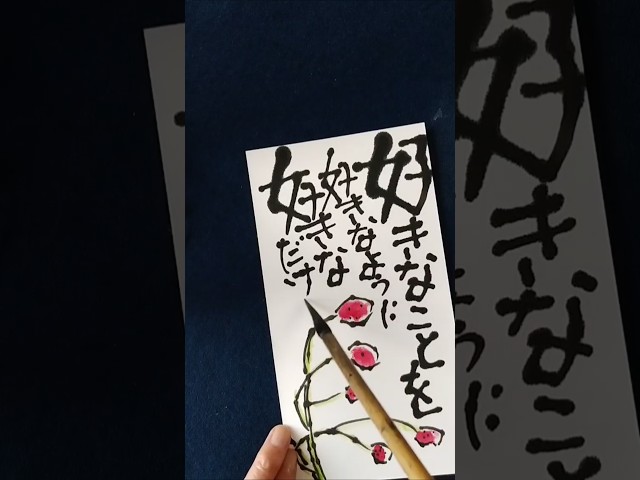 好きなことを
好きなように
好きな
だけ